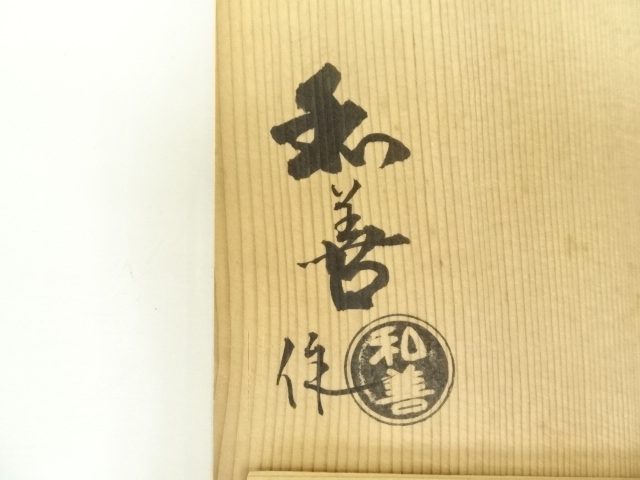 和善
作
和善